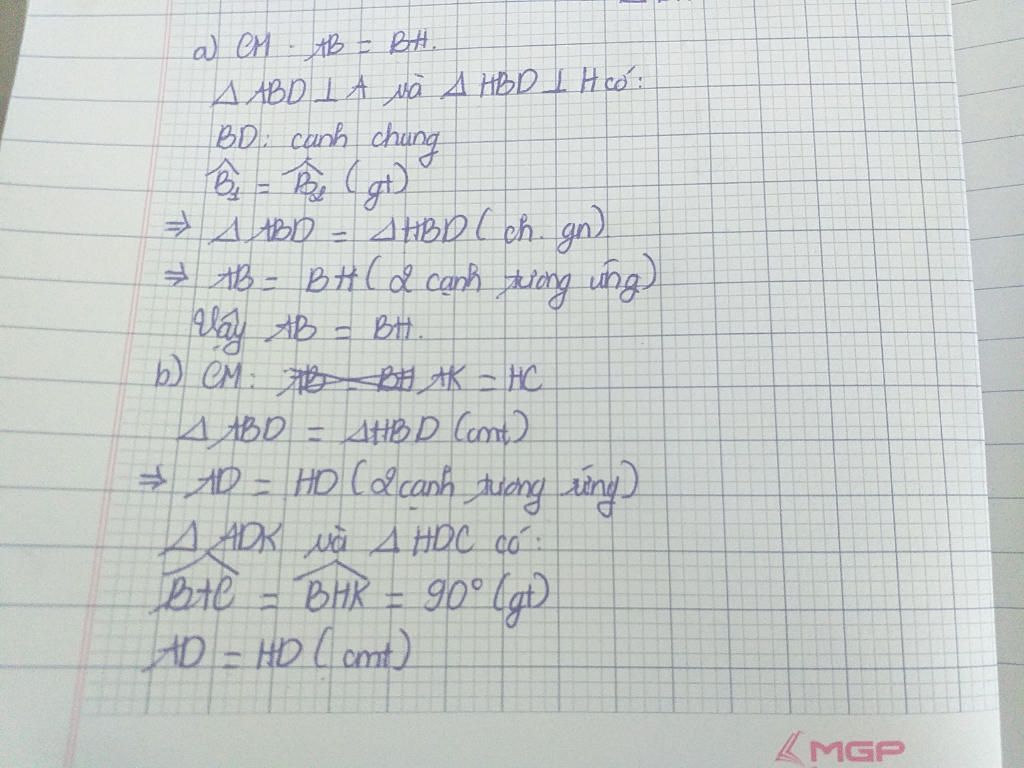 a) CM: AB = BH.
Δ ABD ⊥ A và Δ HBD ⊥ H có:
BD: cạnh chung
B̂₁ = B̂₂ (gt)
⇒ Δ ABD = ΔHBD (ch. gn)
⇒ AB = BH (2 cạnh tương ứng)
Vậy AB = BH.
b) CM: AB = BH AK = HC
Δ ABD = ΔHBD (cmt)
⇒ AD = HD (2 cạnh tương ứng)
Δ ADK và Δ HDC có:
BAC = BHK = 90° (gt)
AD = HD (cmt)
MGP